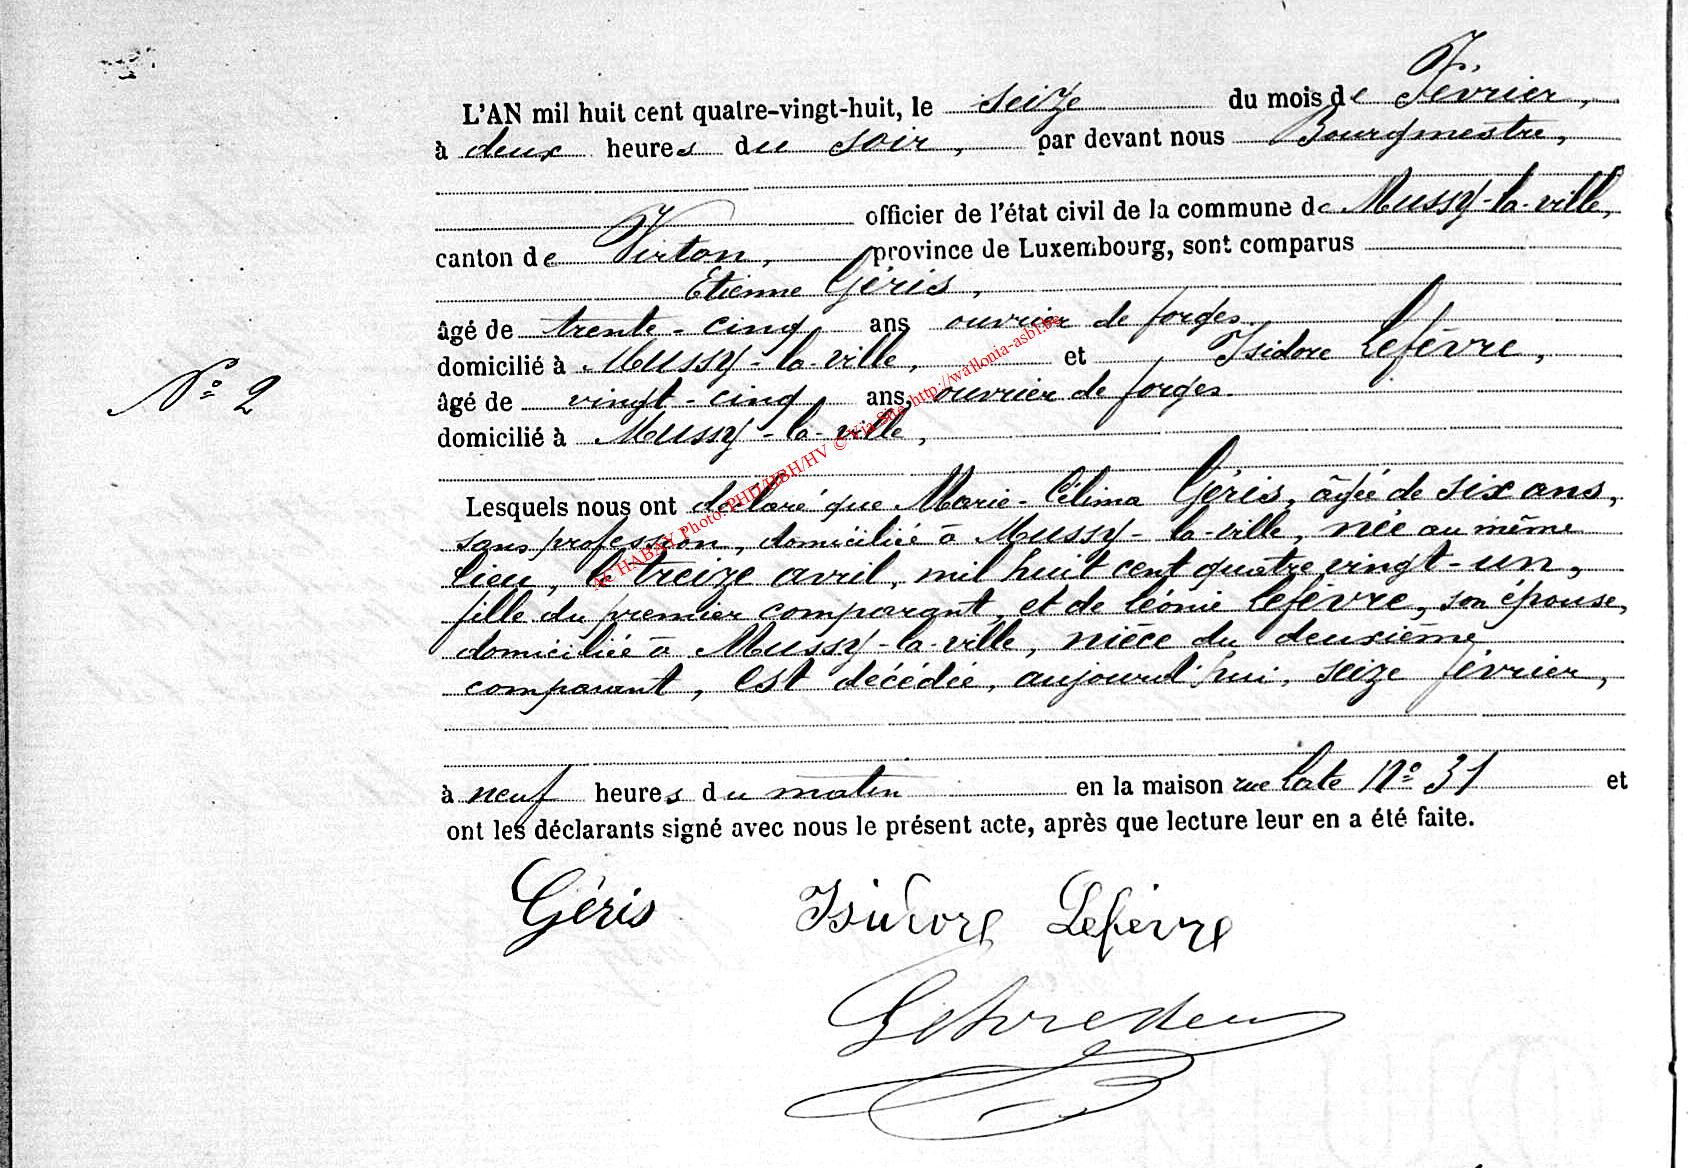 Fr,
L'AN mil huit cent quatre-vingt-huit, le seize du mois de Février,
à deux heures du soir, par devant nous Bourgmestre,
officier de l'état civil de la commune de Mussy-la-ville,
canton de Virton, province de Luxembourg, sont comparus
Etienne Géris,
âgé de trente-cinq ans ouvrier de forges.
domicilié à Mussy-la-ville, et Isidore Lefèvre,
âgé de vingt-cinq ans, ouvrier de forges.
N° 2
domicilié à Mussy-la-ville,
Lesquels nous ont déclaré que Marie-Célima Géris, âgée de six ans,
sans profession, domiciliée à Mussy-la-ville, née au même
lieu, le treize avril, mil huit cent quatre vingt-un,
fille du premier comparant, et de Léonie Lefèvre, son épouse,
domiciliée à Mussy-la-ville, nièce du deuxième
comparant, est décédée, aujourd'hui, seize février,
à neuf heures du matin en la maison rue Late N° 31 et
ont les déclarants signé avec nous le présent acte, après que lecture leur en a été faite.
Géris Isidore Lefèvre
AC HABAY Photo: PHD/HBH/HV © Via Site http://wallonia-asbl.be